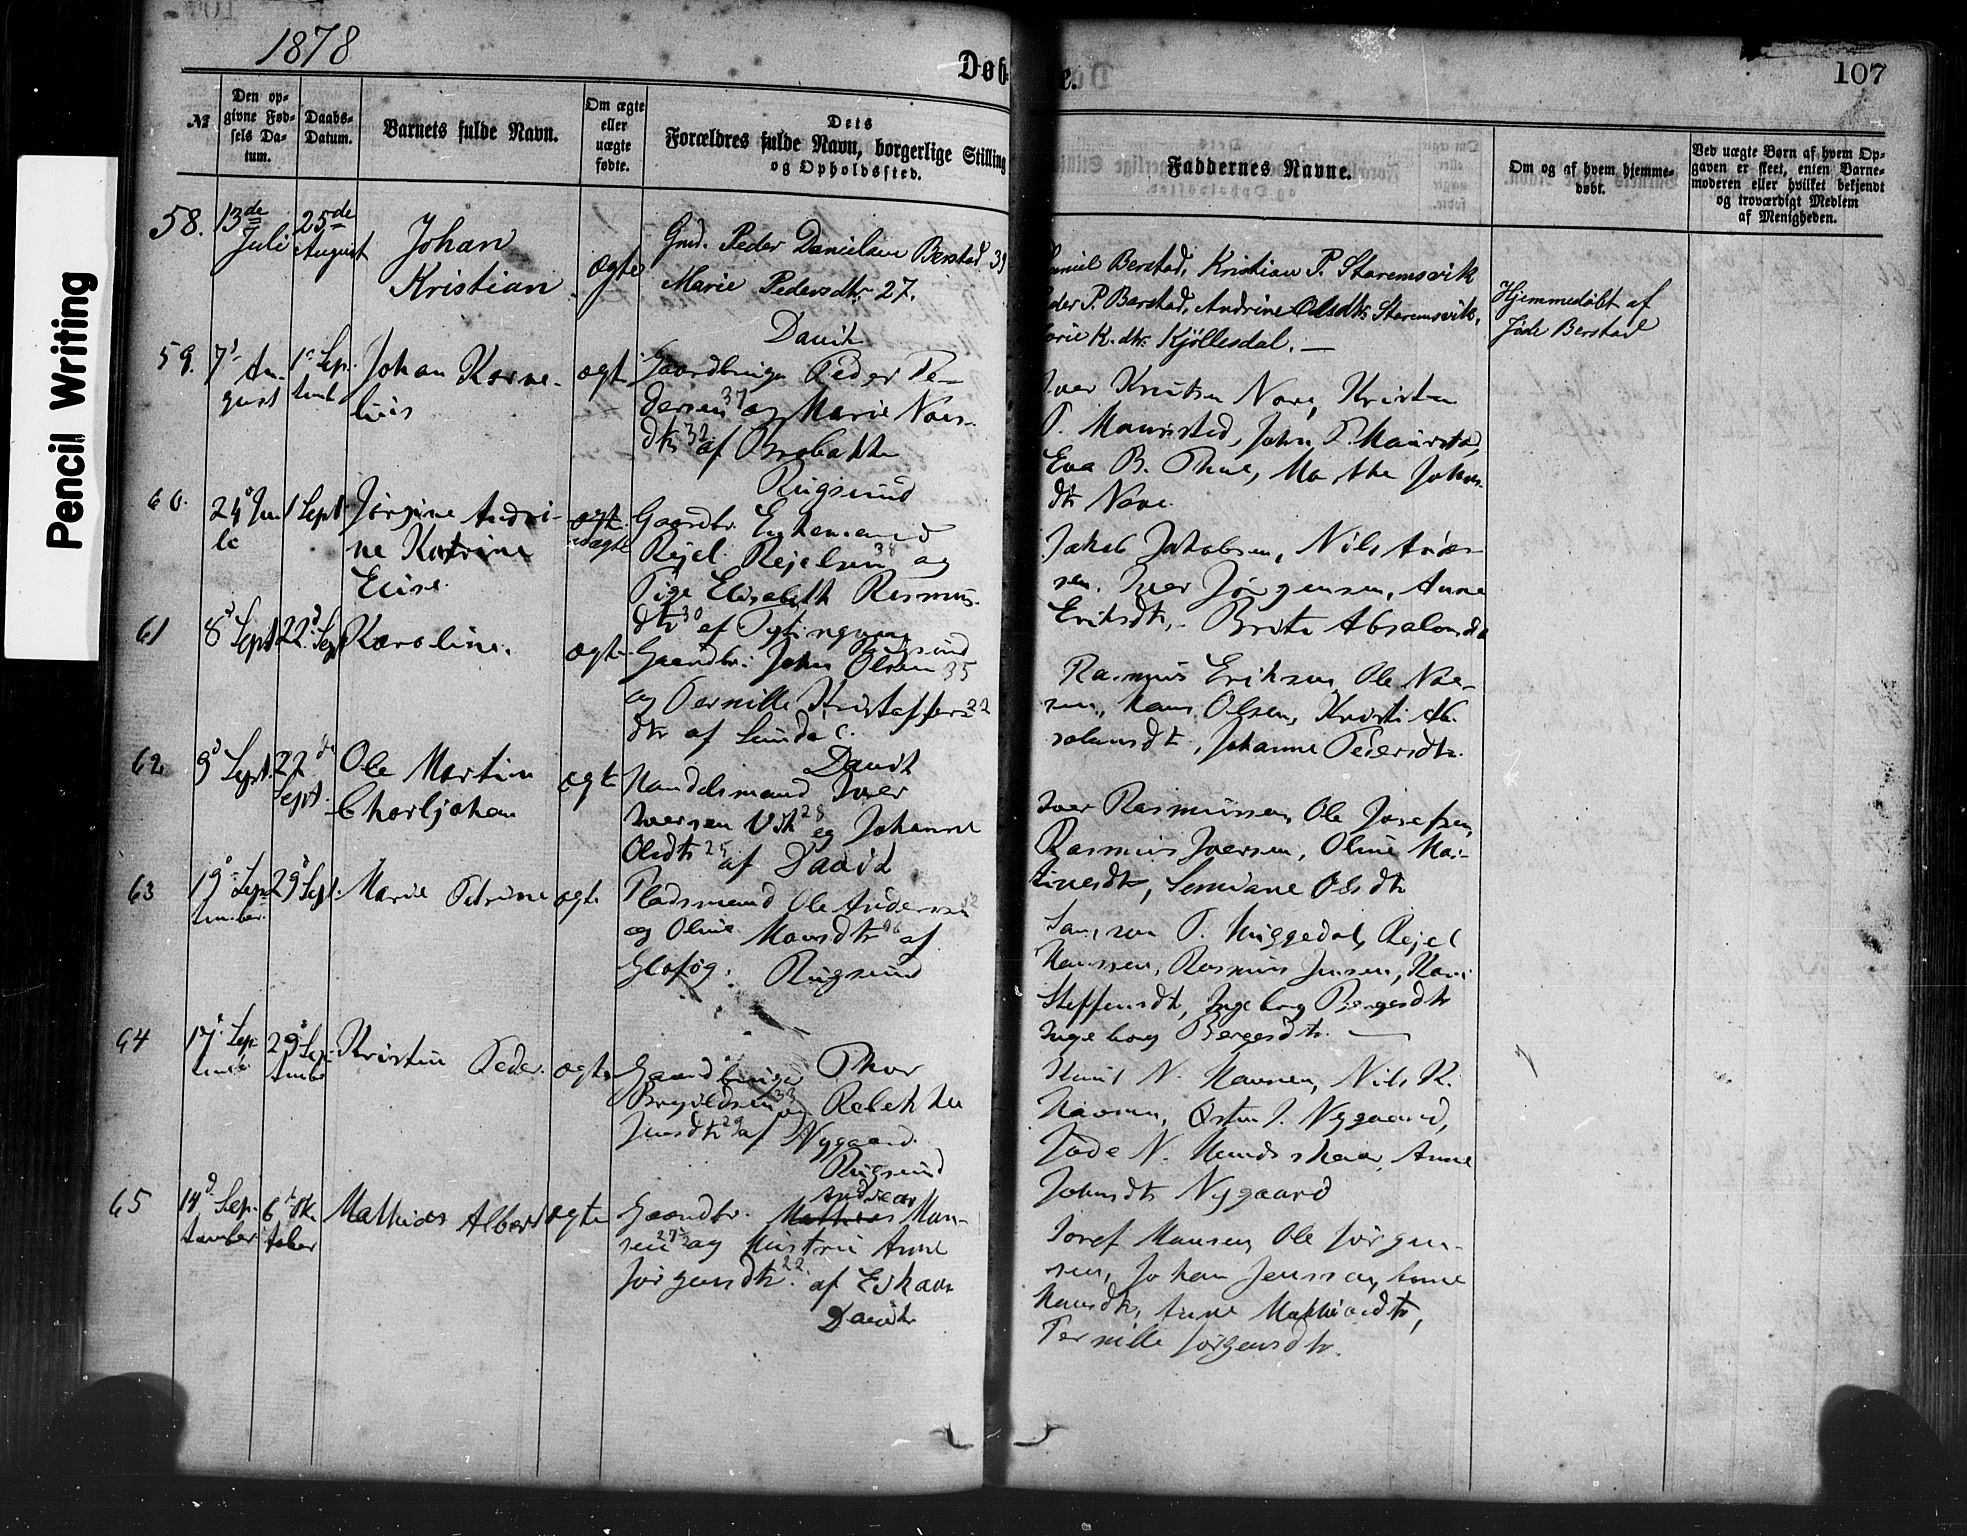 1878
Døb-
te.
107
Pencil Writing
№
Den op-
givne Fød-
sels Da-
tum.
Daabs-
Datum.
Barnets fulde Navn.
Om ægte
eller
uægte
fødte.
Dets
Forældres fulde Navn, borgerlige Stilling
og Opholdssted.
Faddernes Navne.
Om og af hvem hjemme-
døbt.
Ved uægte Børn af hvem Op-
gaven er skeet, enten Barne-
moderen eller hvilket bekjendt
og troværdigt Medlem
af Menigheden.
58.
13de
Juli
25de
August
Johan
Kristian
ægte
Gmd. Peder Danielsen Berstad 39
Marie Pedersdtr 27.
Daniel Berstad, Kristian P. Staremsvik
Peder P. Barstad, Andrine Olsdtr Staremsvik,
Marie K.dtr Kjöllesdal. —
Hjemmedöbt af
Jode Berstad
59.
7d Au-
gust
1 Sep-
temb
Johan Korne-
lius
ægt
Davik
Gaardbruger Peder Pe-
dersen 37 og Marie
dtr 32 af
Iver Knutsen Nore, Kristen
P. Maurstad, John P. Maurstad,
Eva B. Thue, Marthe Johns-
dtr Nore.
60.
24d Ju-
li
1 Sept
Jørgine Andri-
ne Katrine
Elise
ægte
uægte
Rugsund
Gaardbr. Enkemand
Rejel Rejelsen 38 og
Pige Elisabeth Rasmus-
dtr 30 af
Jakob Jakobsen, Nils
sen, Iver Jørgensen, Anne
Eriksdtr, Brite Absalonsdtr
61
8d Sept
22d Sept
Karoline.
ægte
Rugsund
Gaardbr. John Olsen 35
og Pernille Kristoffers 22
dtr af Lunde
Rasmus Eriksen, Ole
sen, Hans Olsen, Kristi Ab-
salonsdtr, Johanne Pedersdtr.
62
9d Sept.
22de
Sept.
Ole Martin
Charljohan
ægte
Davik
Handelsmand Iver
Iversen 28 og Johanne
Olsdtr 25 af Davik
Iver Rasmussen, Ole Josefsen,
Rasmus Iversen, Oline Mar-
tinesdtr, Olsdtr
63
19d Sep-
tember
29d Sept.
Marie Petrine
ægte
Pladsmand Ole Andersen
og Oline Monsdtr af
Rugsund
P. Myggedal, Rejel
Hanssen, Rasmus Jensen, Kari
Steffensdtr, Ingeborg Børgesdtr
Ingeborg Børgesdtr. —
64
17d Sep-
tember
29d Sep-
tember
Kristen Peder.
ægte
Gaardbruger Thor
33 og Rebekka
Jensdtr 29 af Nygaard.
Knut N. Hausen, Nils K.
Østen J. Nygaard,
Jode N. Anne
Johnsdtr Nygaard
65
14d Sep-
tember
6te Ok-
tober
Mathias Albert
ægte
Rugsund
Andreas
Gaardbr. Mathias Han-
sen 27 og Hustru Anne
Jørgensdtr 22 af Eikavn
Davik
Josef Hansen, Ole Jørgen-
sen, Johan Jenssen, Anne
Hansdtr, Anne Mathiasdtr,
Pernille Jørgensdtr.